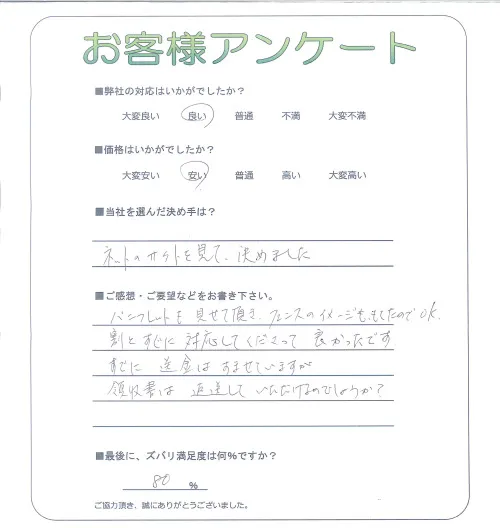 お客様アンケート
■弊社の対応はいかがでしたか？
大変良い 良い 普通 不満 大変不満
■価格はいかがでしたか？
大変安い 安い 普通 高い 大変高い
■当社を選んだ決め手は？
ネットのサイトを見て、決めました
■ご感想・ご要望などをお書き下さい。
パンフレットを見せて頂き、フェンスのイメージももてたのでOK.
割とすぐに対応してくださって良かったです
すぐに送金はすませていますが
領収書は返送していただけるのでしょうか？
■最後に、ズバリ満足度は何％ですか？
80 ％
ご協力頂き、誠にありがとうございました。